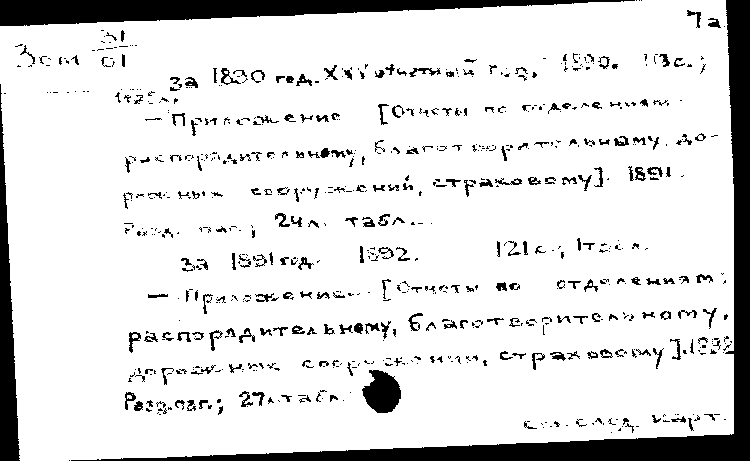 7а
Зем 31/01
за 1890 год. XXV отчетный год. 1890. 113 с.;
1 табл.
— Приложение [Отчеты по отделениям:
распорядительному, благотворительному, до-
рожных сооружений, страховому]. 1891.
Разд. паг.; 24 л. табл.
за 1891 год. 1892. 121 с.; 1 табл.
— Приложение. [Отчеты по отделениям:
распорядительному, благотворительному,
дорожных сооружении, страховому]. 1892
Разд. паг.; 27 л. табл.
см. след. карт.